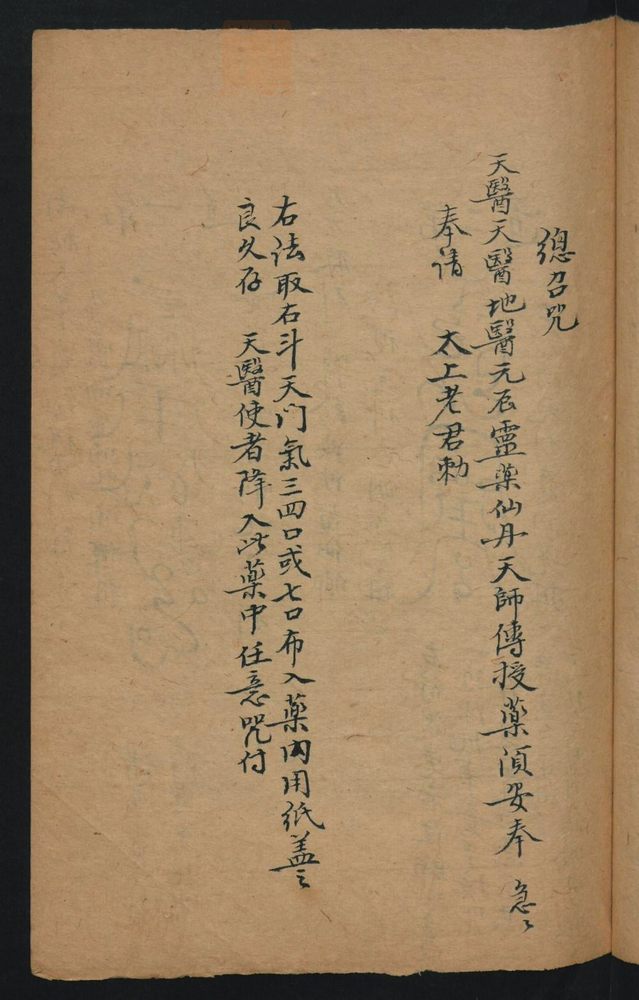 總召咒
天醫天醫地醫元辰靈藥仙丹天師傳授藥須妥奉 急〻
奉请 太上老君勅
右法取右斗天门氣三四口或七口布入藥内用紙盖〻
良久存 天醫使者降入此藥中任意咒付